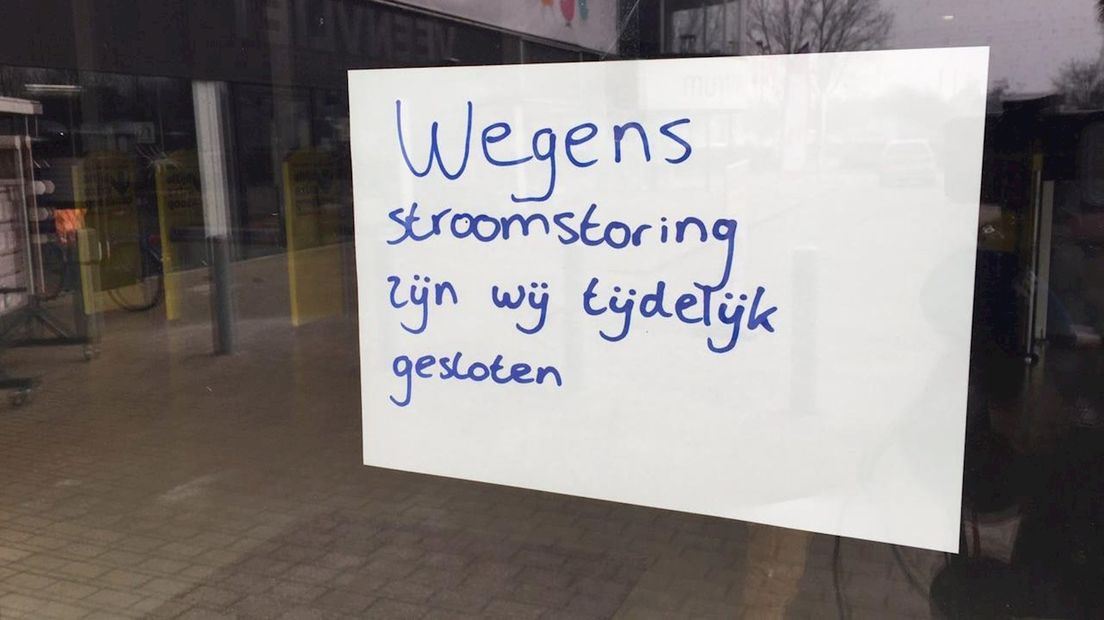 Wegens
stroomstoring
zijn wij tijdelijk
gesloten